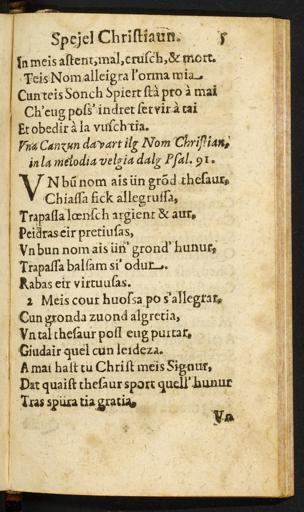 Spejel Christiaun. 5
In meis astent, mal, crusch, & mort.
Teis Nom alleigra l'orma mia
Cun teis Sonch Spiert stà pro à mai
Ch'eug poss' indret servir à tai
Et obedir à la vusch tia.
Vna Canzun davart ilg Nom Christian,
in la melodia velgia dalg Psal. 91.
VN bũ nom ais ün grõd thesaur,
Chiassa fick allegrussa,
Trapassa lœnsch argient & aur,
Peidras eir pretiusas,
Vn bun nom ais ün' grond' hunur,
Trapassa balsam si' odur.
Rabas eir virtuusas.
2 Meis cour huossa po s'allegrar,
Cun gronda zuond algretia,
Vn tal thesaur poss eug purtar,
Giudair quel cun leideza.
A mai hast tu Christ meis Signur,
Dat quaist thesaur sport quell' hunur
Tras spüra tia gratia,
Vn